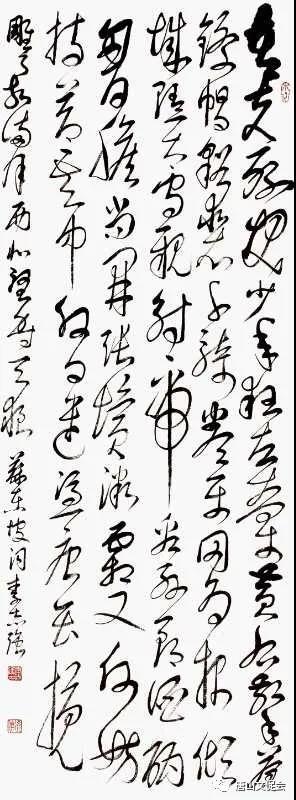 老夫聊发少年狂左牵黄右擎苍
锦帽貂裘千骑卷平冈为报倾
城随太守亲射虎看孙郎酒酣
胸胆尚开张鬓微霜又何妨
持节云中何日遣冯唐会挽
雕弓如满月西北望射天狼 苏东坡词 李志强
唐山文促会